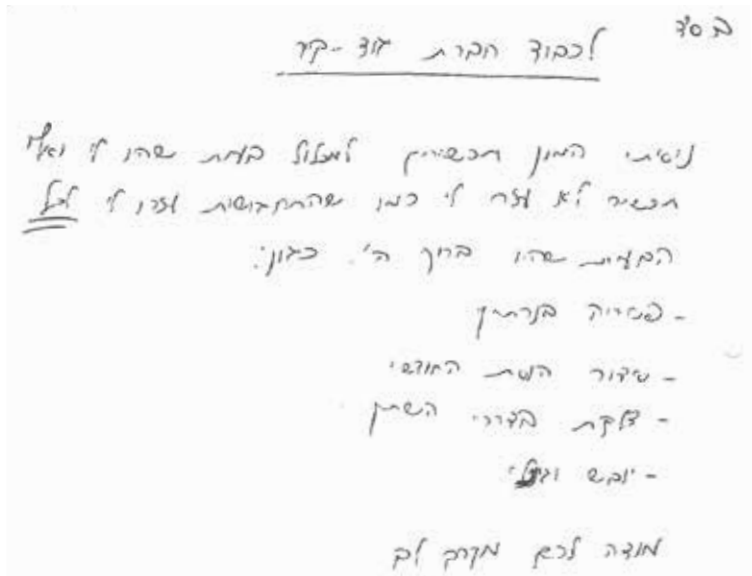 בס"ד
לכבוד חברת גוד-קיר
ניסיתי המון תכשירים למכלול בעיות שהיו לי ואף
תכשיר לא עזר לי כמו שהתחבושות עזרו לי לכל
הבעיות שהיו ברוך ה'. כגון:
- פטריה בנרתיק
- סידור הווסת החודשי
- דלקת בדרכי השתן
- יובש וגירוי
מודה לכם מקרב לב